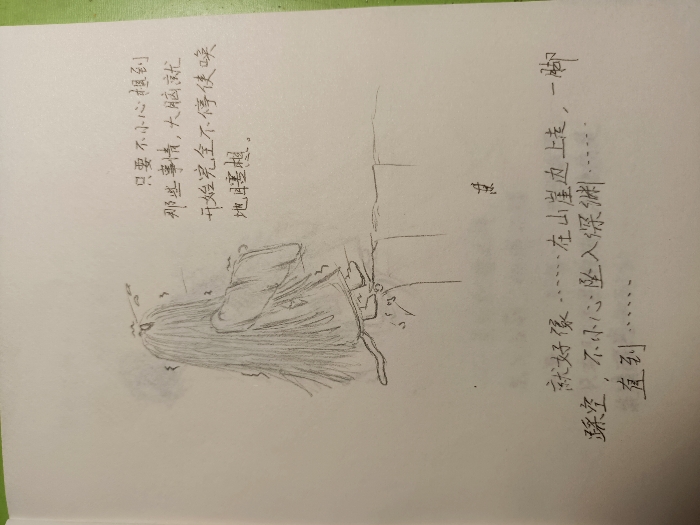 只要不小心想到
那些事情，大脑就
开始完全不停使唤
地瞎想。
就好像……在山崖边上走，一脚
踩空，不小心坠入深渊……
直到……